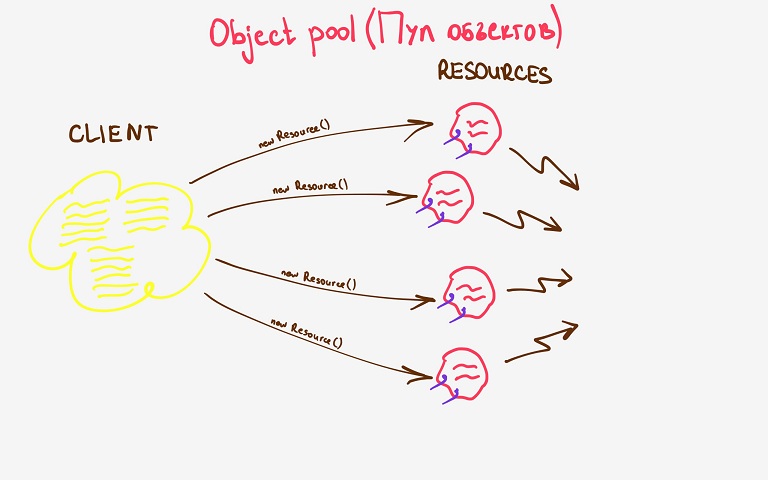 Object pool (Пул объектов)
RESOURCES
CLIENT
new Resource()
new Resource()
new Resource()
new Resource()